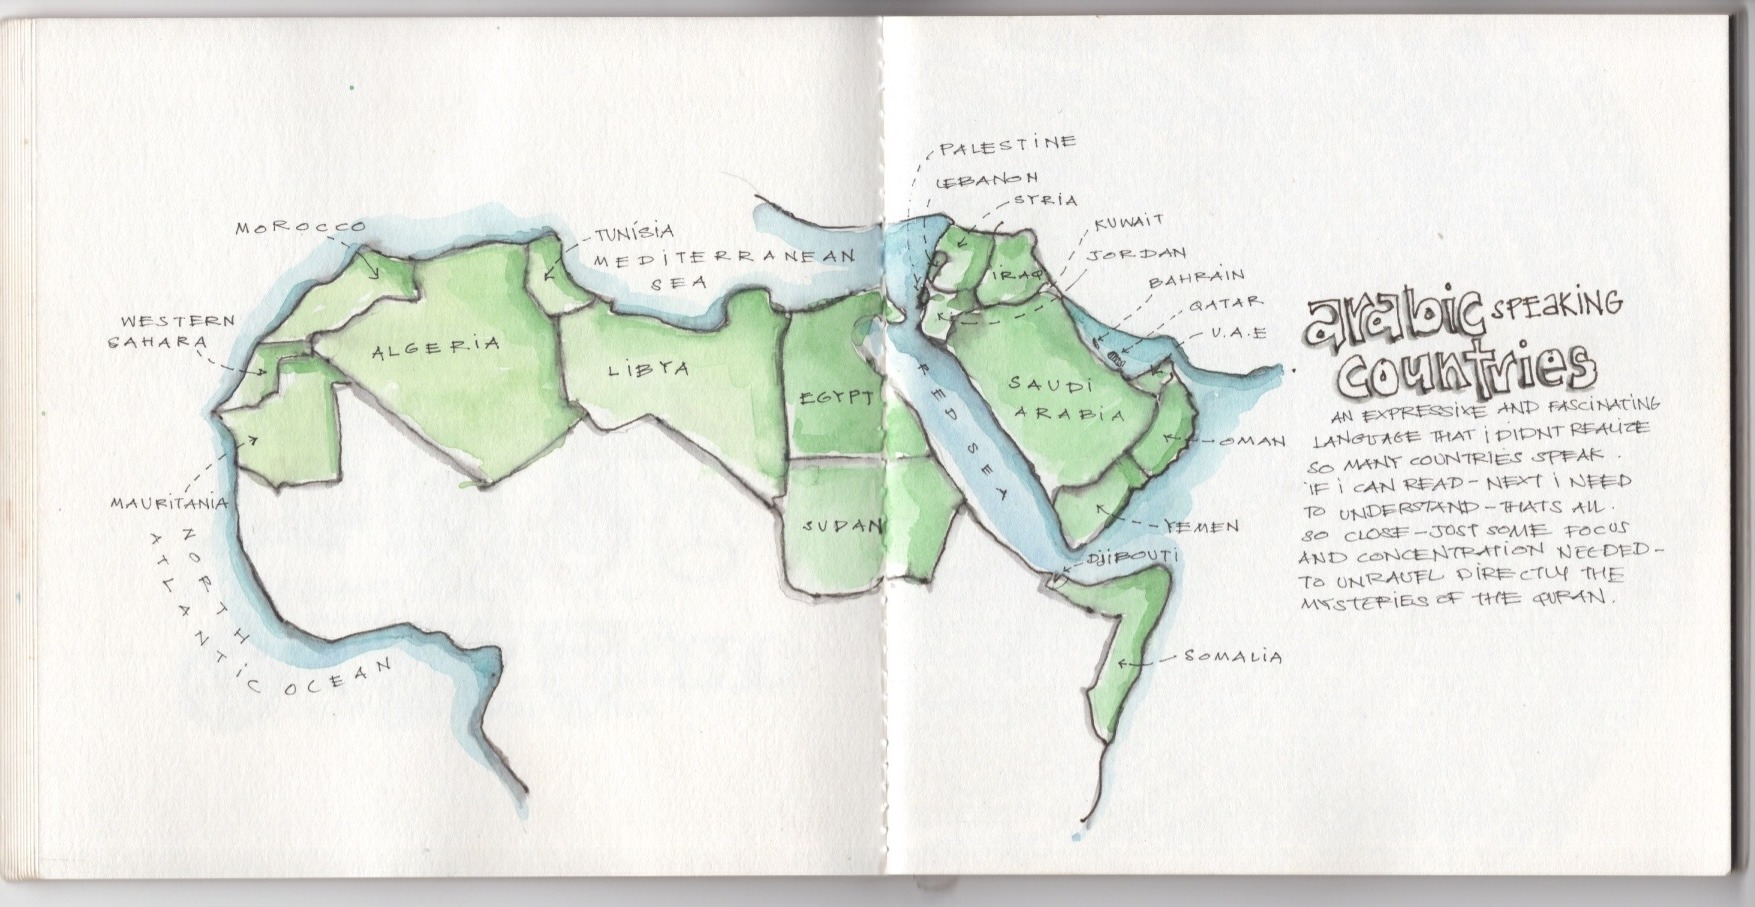 PALESTINE
LEBANON
SYRIA
MOROCCO
TUNÍSIA
KUWAIT
MEDITERRANEAN
SEA
JORDAN
IRAQ
BAHRAIN
QATAR
WESTERN
SAHARA
U.A.E
ALGERIA
LIBYA
EGYPT
RED SEA
SAUDI
ARABIA
OMAN
MAURITANIA
SUDAN
YEMEN
DJIBOUTI
NORTH
ATLANTIC OCEAN
SOMALIA
arabic SPEAKING
countries
AN EXPRESSIVE AND FASCINATING
LANGUAGE THAT I DIDNT REALIZE
SO MANY COUNTRIES SPEAK.
IF I CAN READ - NEXT I NEED
TO UNDERSTAND - THATS ALL.
SO CLOSE - JUST SOME FOCUS
AND CONCENTRATION NEEDED -
TO UNRAVEL DIRECTLY THE
MYSTERIES OF THE QURAN.